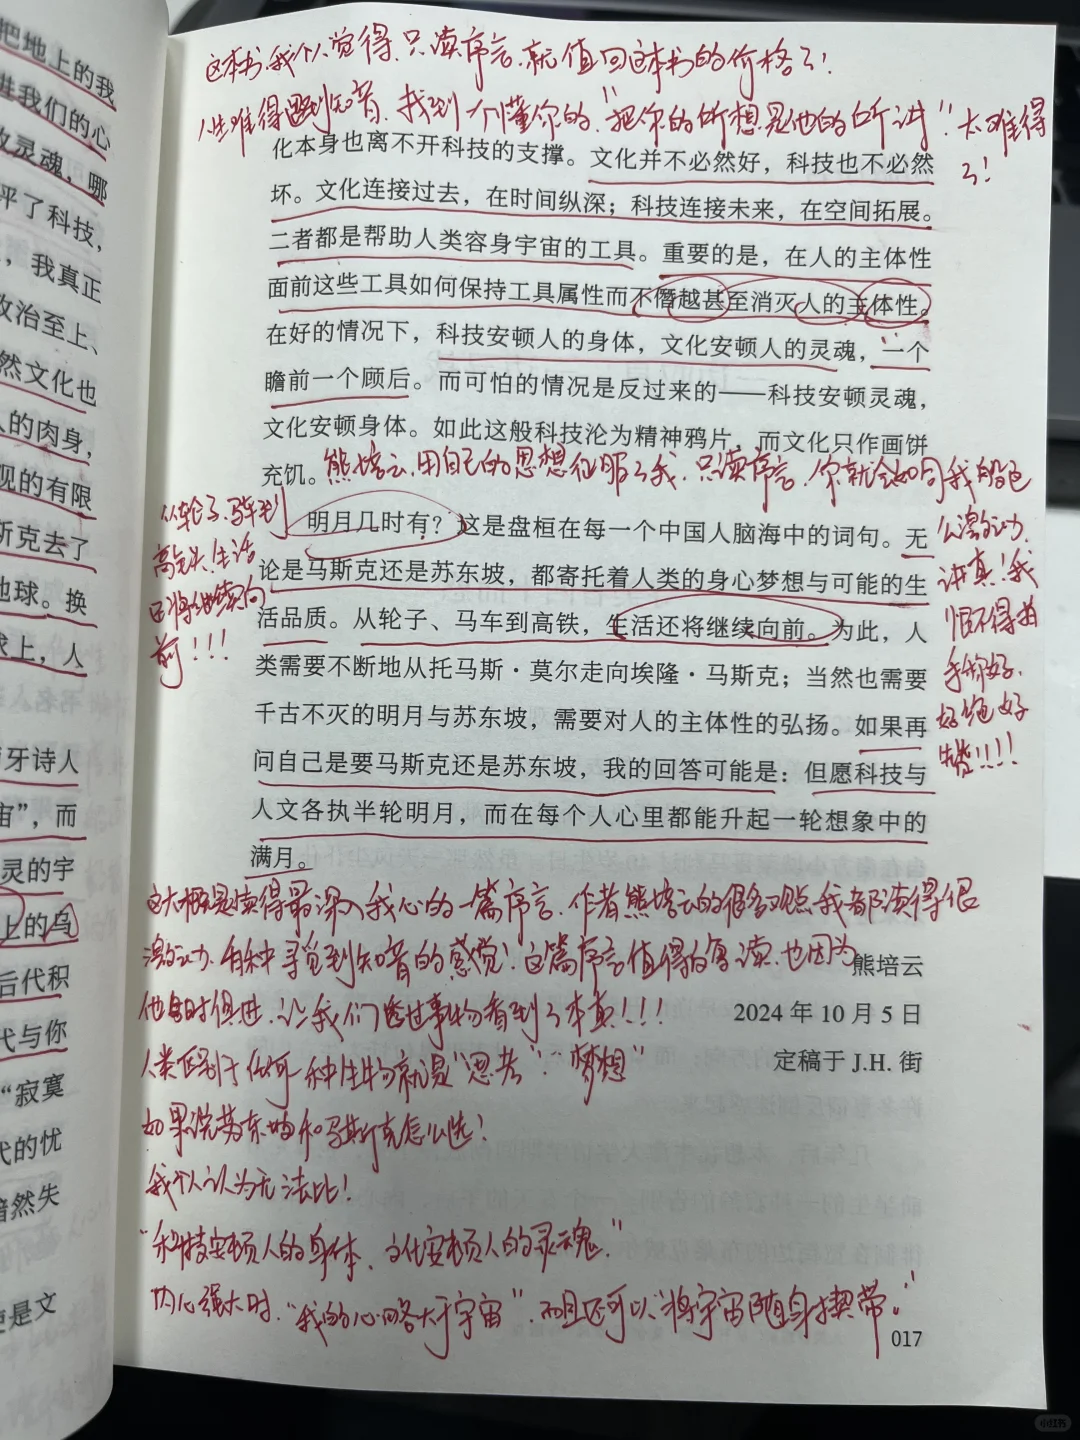 把地上的我
进我们的心
放灵魂，哪
平了科技，
，我真正
政治至上、
然文化也
人的肉身，
观的有限
斯克去了
地球。换
球上，人
牙诗人
宙”，而
灵的宇
上的乌
后代积
代与你
“寂寞
代的忧
黯然失
使是文
这本书，我个人觉得，只读序言，就值回这本书的价格了！
人生难得遇到知音，找到一个懂你的，“把你的所想是他的所讲”，太难得
了！
化本身也离不开科技的支撑。文化并不必然好，科技也不必然
坏。文化连接过去，在时间纵深；科技连接未来，在空间拓展。
二者都是帮助人类容身宇宙的工具。重要的是，在人的主体性
面前这些工具如何保持工具属性而不僭越甚至消灭人的主体性。
在好的情况下，科技安顿人的身体，文化安顿人的灵魂，一个
瞻前一个顾后。而可怕的情况是反过来的——科技安顿灵魂，
文化安顿身体。如此这般科技沦为精神鸦片，而文化只作画饼
充饥。
熊培云，用自己的思想征服了我，只读序言，你就会如同我般包
么激动，
讲真！我
恨不得拍
手称好，
好绝好
赞！！！！
从轮子、马车到
高铁，生活
还将继续向
前！！！
明月几时有？这是盘桓在每一个中国人脑海中的词句。无
论是马斯克还是苏东坡，都寄托着人类的身心梦想与可能的生
活品质。从轮子、马车到高铁，生活还将继续向前。为此，人
类需要不断地从托马斯·莫尔走向埃隆·马斯克；当然也需要
千古不灭的明月与苏东坡，需要对人的主体性的弘扬。如果再
问自己是要马斯克还是苏东坡，我的回答可能是：但愿科技与
人文各执半轮明月，而在每个人心里都能升起一轮想象中的
满月。
这大概是读得最深入我心的一篇序言，作者熊培云的很多观点我都读得很
激动，有种寻觅到知音的感觉！这篇序言值得的复读，也因为
熊培云
他与时俱进，让我们透过事物看到了本真！！！
2024 年 10 月 5 日
人类区别于任何一种生物就是“思考”“梦想”
定稿于 J.H. 街
如果说苏东坡和马斯克怎么选？
我个人认为无法比！
“科技安顿人的身体，文化安顿人的灵魂，”
内心强大时，“我的心略大于宇宙”，而且还可以“将宇宙随身携带。”
017